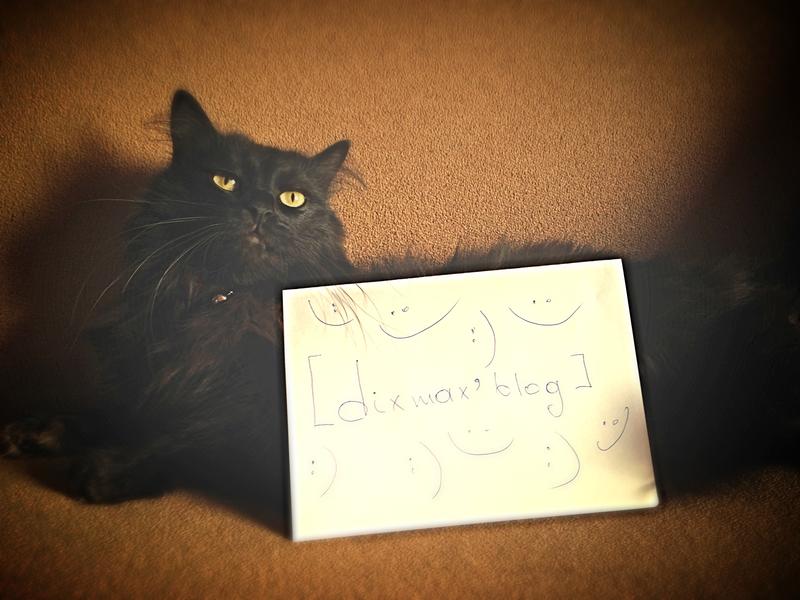 [dixmax' blog]